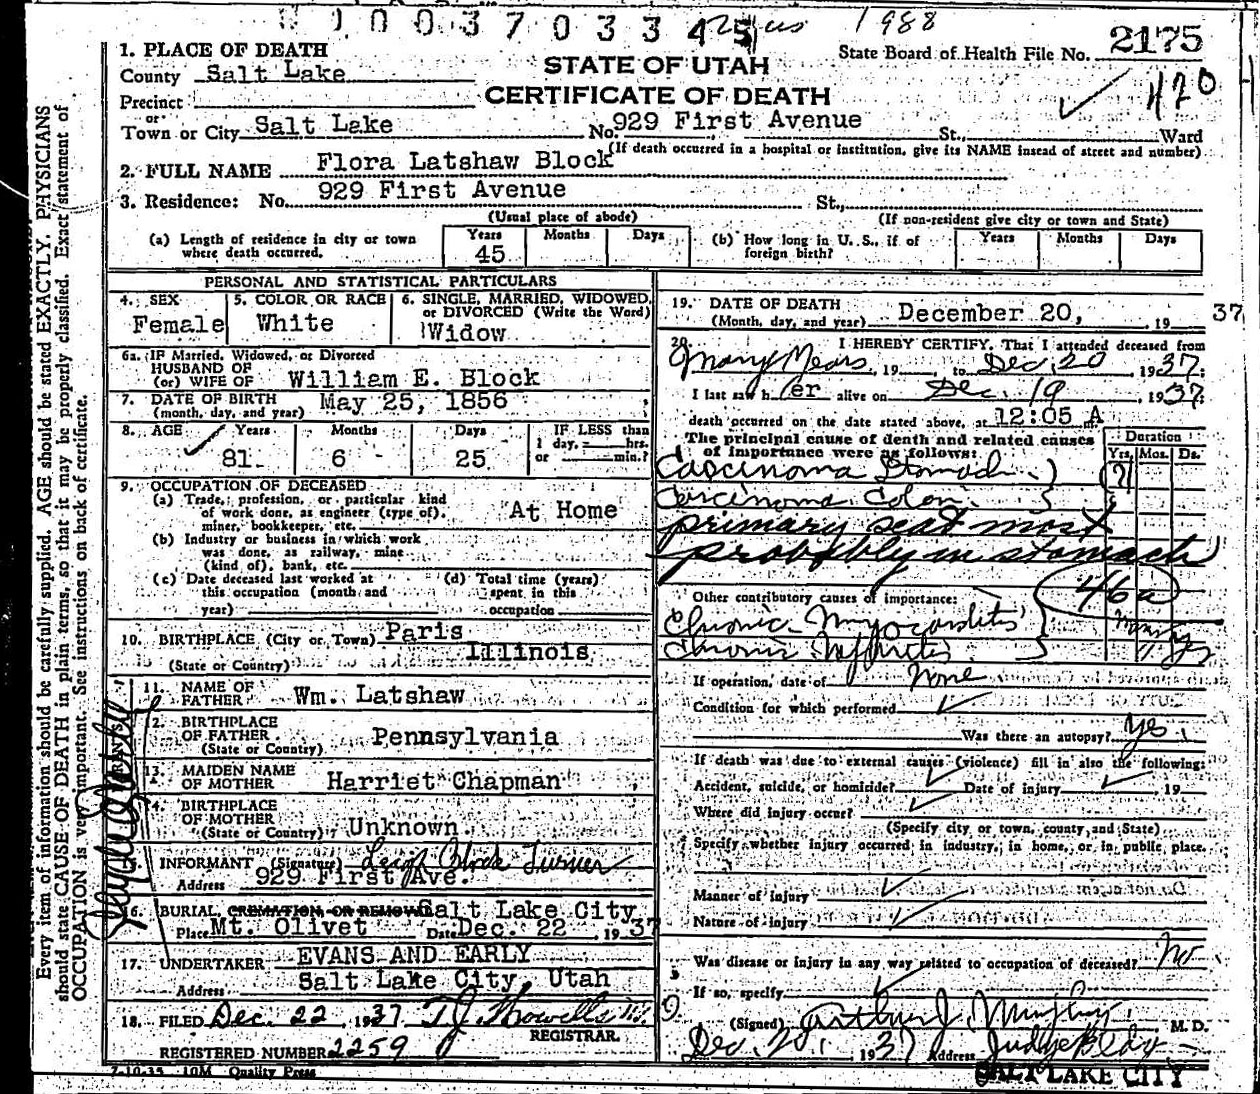 1988
State Board of Health File No. 2175
420
STATE OF UTAH
CERTIFICATE OF DEATH
1. PLACE OF DEATH
County Salt Lake
Precinct
or
Town or City Salt Lake No. 929 First Avenue St., Ward
(If death occurred in a hospital or institution, give its NAME insead of street and number)
2. FULL NAME Flora Latshaw Block
3. Residence: No. 929 First Avenue St.,
(Usual place of abode) (If non-resident give city or town and State)
(a) Length of residence in city or town where death occurred. Years 45 Months Days
(b) How long in U. S., if of foreign birth? Years Months Days
PERSONAL AND STATISTICAL PARTICULARS
4. SEX Female
5. COLOR OR RACE White
6. SINGLE, MARRIED, WIDOWED, or DIVORCED (Write the Word) Widow
6a. IF Married, Widowed, or Divorced
HUSBAND OF
(or) WIFE OF William E. Block
7. DATE OF BIRTH (month, day, and year) May 25, 1856
8. AGE Years 81 Months 6 Days 25 IF LESS than 1 day, hrs. or min.?
9. OCCUPATION OF DECEASED
(a) Trade, profession, or particular kind of work done, as engineer (type of), miner, bookkeeper, etc. At Home
(b) Industry or business in which work was done, as railway, mine (kind of), bank, etc.
(c) Date deceased last worked at this occupation (month and year)
(d) Total time (years) spent in this occupation
10. BIRTHPLACE (City or Town) Paris
(State or Country) Illinois
11. NAME OF FATHER Wm. Latshaw
12. BIRTHPLACE OF FATHER (State or Country) Pennsylvania
13. MAIDEN NAME OF MOTHER Harriet Chapman
14. BIRTHPLACE OF MOTHER (State or Country) Unknown
INFORMANT (Signature) Leigh Block Turner
Address 929 First Ave.
16. BURIAL, CREMATION, OR REMOVAL Salt Lake City
Place Mt. Olivet Date Dec. 22 1937
17. UNDERTAKER EVANS AND EARLY
Address Salt Lake City, Utah
18. FILED Dec. 22, 1937 T.J. Howells
REGISTRAR.
REGISTERED NUMBER 2259
7-10-35 10M Quality Press
19. DATE OF DEATH (Month, day, and year) December 20, 19 37
20. I HEREBY CERTIFY, That I attended deceased from
Many Years, 19 , to Dec. 20 1937.
I last saw h er alive on Dec. 19 1937.
death occurred on the date stated above, at 12:05 A m.
The principal cause of death and related causes of importance were as follows:
Duration
Yrs. Mos. Ds.
Carcinoma Stomach
Carcinoma Colon
primary seat most
probably in stomach
46a
Other contributory causes of importance:
Chronic Myocarditis Many
Chronic Nephritis " yrs
If operation, date of None
Condition for which performed
Was there an autopsy? Yes.
If death was due to external causes (violence) fill in also the following:
Accident, suicide, or homicide? Date of injury 19
Where did injury occur?
(Specify city or town, county, and State)
Specify whether injury occurred in industry, in home, or in public place.
Manner of injury
Nature of injury
Was disease or injury in any way related to occupation of deceased? No
If so, specify
(Signed) Arthur J. Murphy M. D.
Dec. 20, 1937 Address Judge Bldg
SALT LAKE CITY
Every item of information should be carefully supplied. AGE should be stated EXACTLY. PHYSICIANS
should state CAUSE OF DEATH in plain terms, so that it may be properly classified. Exact statement of
OCCUPATION is very important. See instructions on back of certificate.